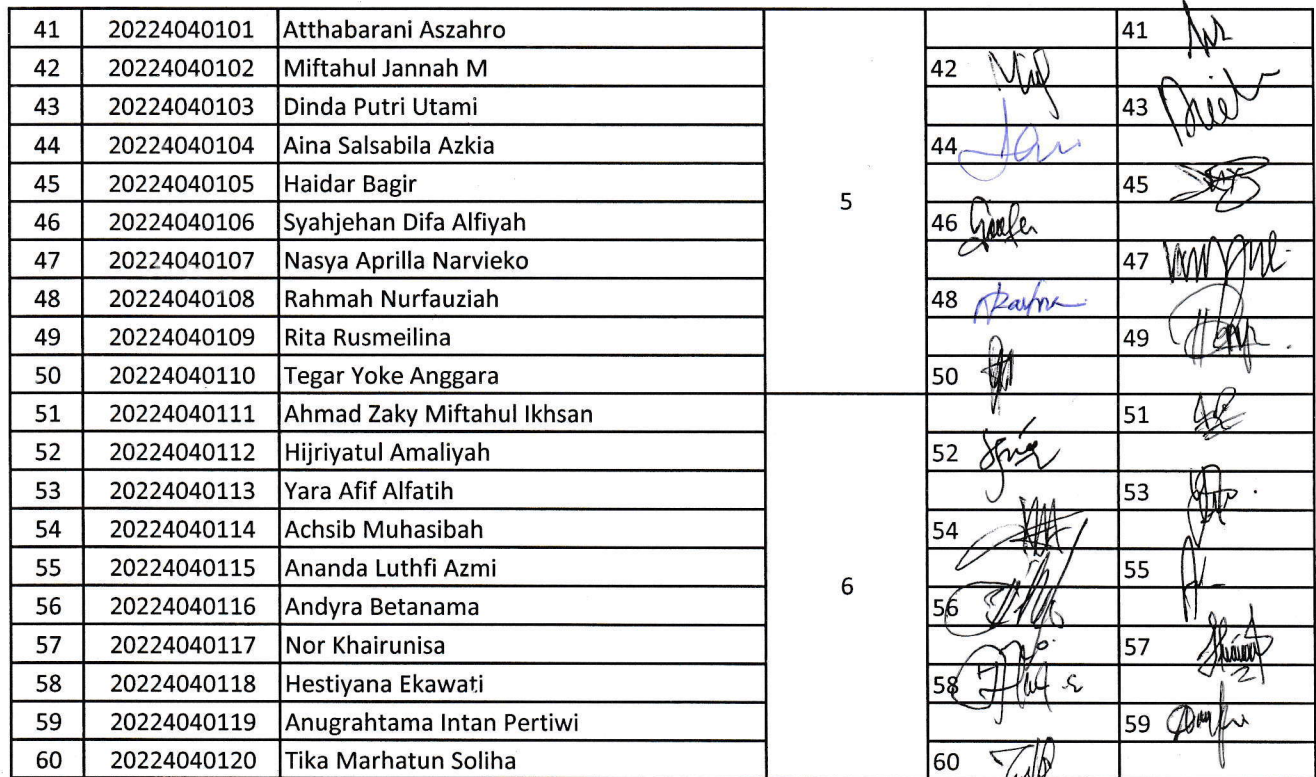 41 20224040101 Atthabarani Aszahro 41
42 20224040102 Miftahul Jannah M 42
43 20224040103 Dinda Putri Utami 43
44 20224040104 Aina Salsabila Azkia 44
45 20224040105 Haidar Bagir 5 45
46 20224040106 Syahjehan Difa Alfiyah 46
47 20224040107 Nasya Aprilla Narvieko 47
48 20224040108 Rahmah Nurfauziah 48
49 20224040109 Rita Rusmeilina 49
50 20224040110 Tegar Yoke Anggara 50
51 20224040111 Ahmad Zaky Miftahul Ikhsan 51
52 20224040112 Hijriyatul Amaliyah 52
53 20224040113 Yara Afif Alfatih 53
54 20224040114 Achsib Muhasibah 54
55 20224040115 Ananda Luthfi Azmi 6 55
56 20224040116 Andyra Betanama 56
57 20224040117 Nor Khairunisa 57
58 20224040118 Hestiyana Ekawati 58
59 20224040119 Anugrahtama Intan Pertiwi 59
60 20224040120 Tika Marhatun Soliha 60